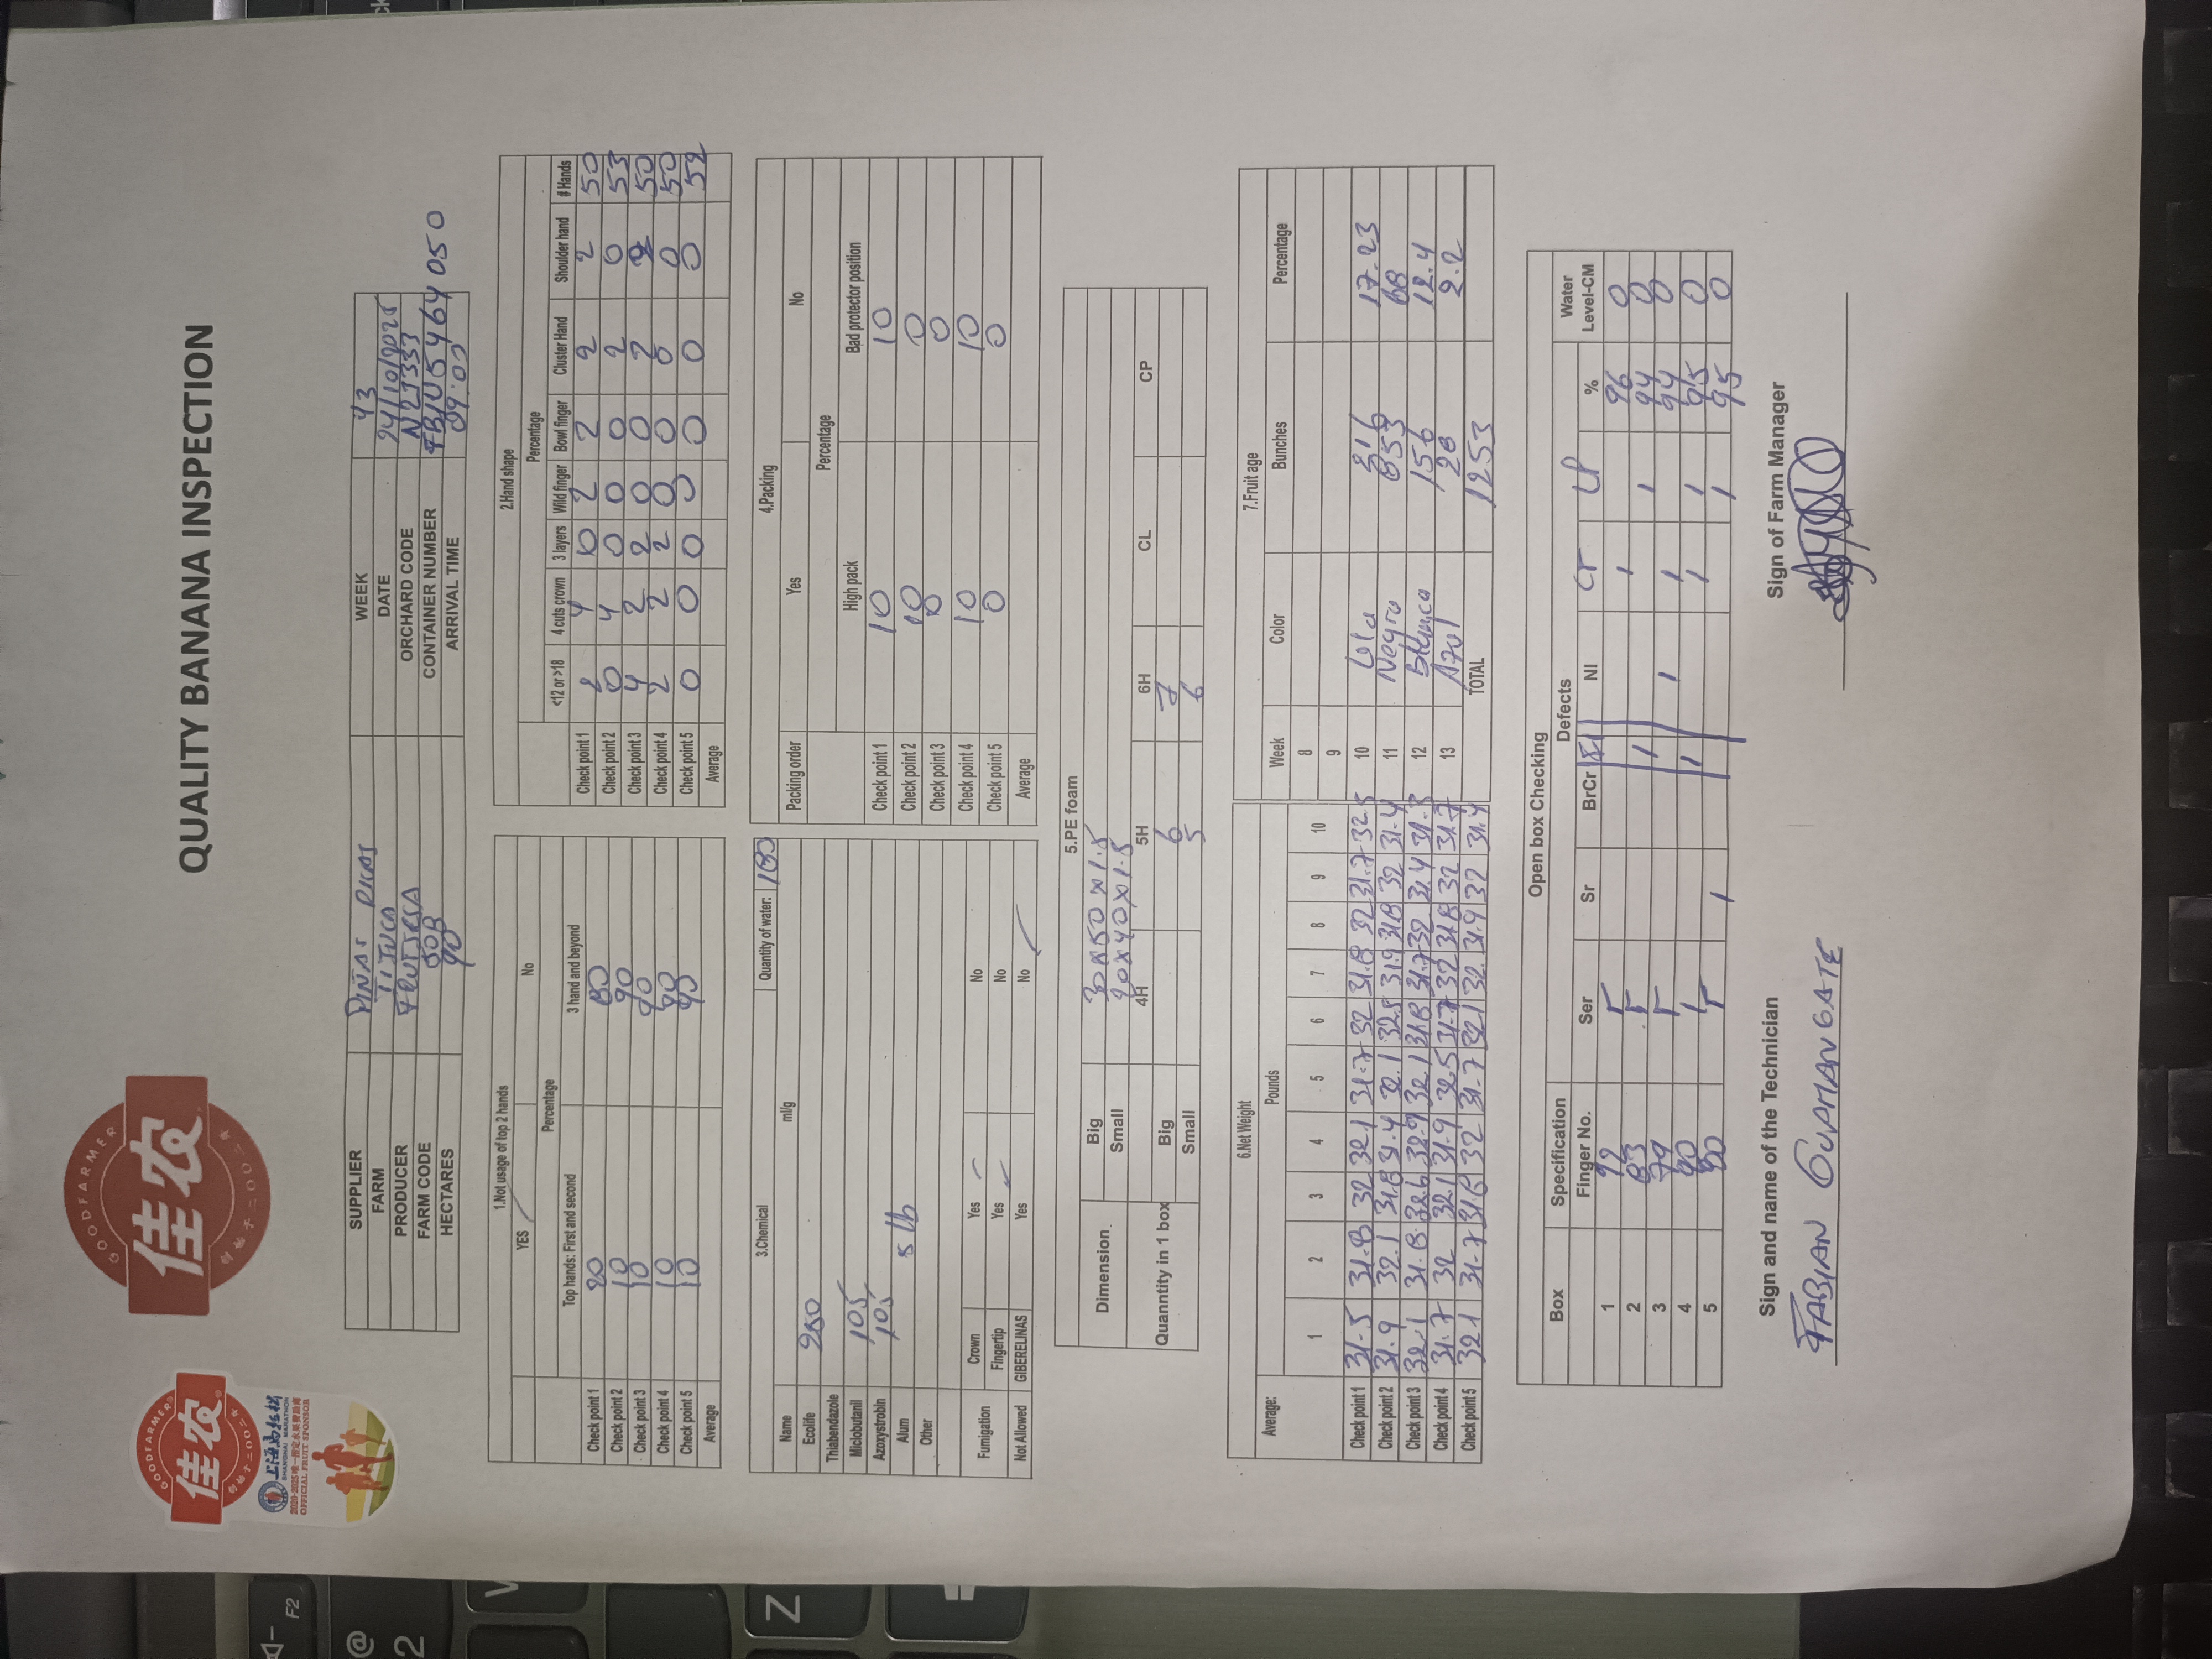 GOODFARMER
佳农
SHANGHAI MARATHON
2020-2025 唯一指定水果赞助商
OFFICIAL FRUIT SPONSOR
GOODFARMER
佳农
QUALITY BANANA INSPECTION
SUPPLIER WEEK 43
FARM TIJUCA DATE 24/10/2025
PRODUCER FRUTSESA ORCHARD CODE
FARM CODE CONTAINER NUMBER FBIU5464050
HECTARES 90 ARRIVAL TIME 09:00
1.Not usage of top 2 hands
YES No
Percentage
Top hands: First and second 3 hand and beyond
Check point 1 20 80
Check point 2 10 90
Check point 3 10 90
Check point 4 10 90
Check point 5 10 90
Average
2.Hand shape
Percentage
<12 or >18 4 cuts crown 3 layers Wild finger Bowl finger Cluster Hand Shoulder hand # Hands
Check point 1 2 4 0 2 2 2 2 50
Check point 2 0 4 0 0 0 2 0 53
Check point 3 4 2 2 0 0 2 2 50
Check point 4 2 2 2 0 0 0 0 50
Check point 5 0 0 0 0 0 0 0 52
Average
3.Chemical Quantity of water: 180
Name ml/g
Ecolife 280
Thiabendazole
Miclobutanil 105
Azoxystrobin 105
Alum 5 lb
Other
Fumigation Crown Yes No
Fingertip Yes No
Not Allowed GIBERELINAS Yes No
4.Packing
Packing order Yes No
Percentage
High pack Bad protector position
Check point 1 10 10
Check point 2 10 0
Check point 3 0 0
Check point 4 10 10
Check point 5 0 0
Average
5.PE foam
Dimension Big 30x50x1.5
Small 20x40x1.5
Quanntity in 1 box 4H 5H 6H CL CP
Big 6 7
Small 5 6
6.Net Weight
Average: Pounds
1 2 3 4 5 6 7 8 9 10
Check point 1 31.5 31.8 32 32.1 31.7 32 31.8 32 31.7 32.5
Check point 2 31.9 32.1 31.8 31.4 32.1 32.5 31.9 31.8 32 31.4
Check point 3 32.1 31.8 32.6 32.9 32.1 31.8 31.7 32 31.4 31.3
Check point 4 31.7 32 32.1 31.9 32.5 31.7 32 31.8 32 31.7
Check point 5 321 31.7 31.8 32 31.7 321 32. 31.9 32 31.4
7.Fruit age
Week Color Bunches Percentage
8
9
10 Lila 216 17.23
11 Negro 853 68
12 Blanca 156 12.4
13 Azul 28 2.2
TOTAL 1253
Open box Checking
Box Specification Defects Water
Finger No. Ser Sr BrCr NI CT LP % Level-CM
1 92 1 96 0
2 83 1 1 94 0
3 79 1 1 1 94 0
4 90 1 1 1 1 95 0
5 90 1 1 95 0
Sign and name of the Technician Sign of Farm Manager
FABIAN GUAMANGATE